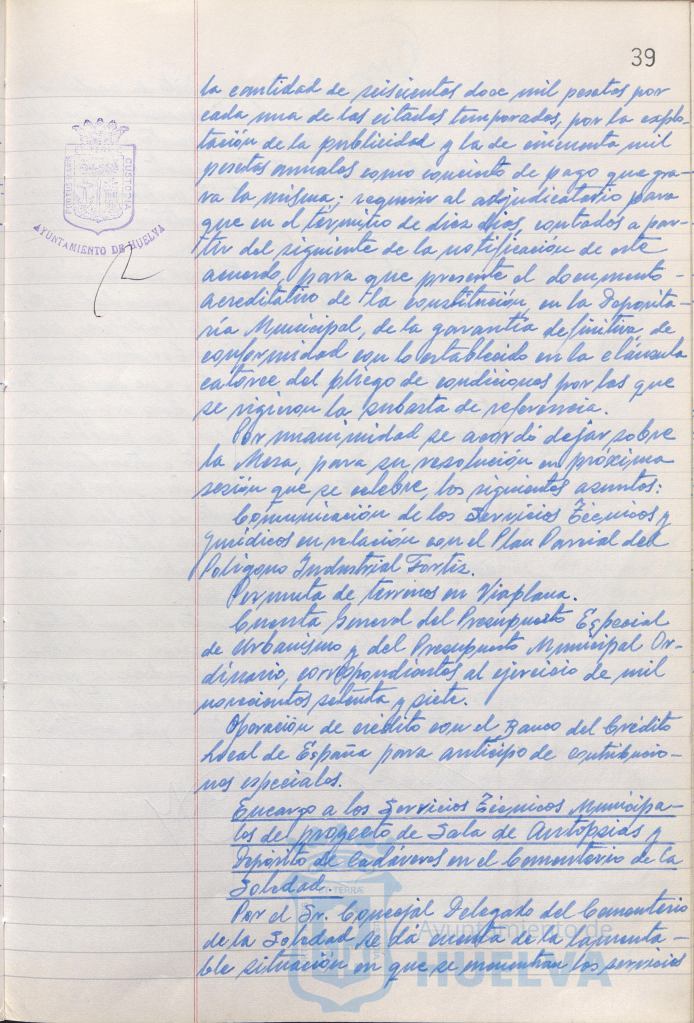 39
la cantidad de seiscientos doce mil pesetas por
cada una de las citadas temporadas, por la explo-
tación de la publicidad y la de cincuenta mil
pesetas anuales como de pago que gra-
va la misma; requerir al adjudicatario para
que en el término de diez días, contados a par-
tir del siguiente de la notificación de este
acuerdo, para que presente el documento
acreditativo de la constitución, en la Deposita-
ría Municipal, de la garantía definitiva de
conformidad con lo establecido en la cláusula
catorce del pliego de condiciones por las que
se rigieron la subasta de referencia.
Por unanimidad se acordó dejar sobre
la Mesa, para su resolución en próxima
sesión que se celebre, los siguientes asuntos:
Comunicación de los Servicios Técnicos y
Jurídicos en relación con el Plan Parcial del
Polígono Industrial Fortiz.
Permuta de terrenos en Viaplana.
Cuenta General del Presupuesto Especial
de Urbanismo y del Presupuesto Municipal Or-
dinario, correspondientes al ejercicio de mil
novecientos setenta y siete.
Operación de crédito con el Banco del Crédito
Local de España para anticipo de contribucio-
nes especiales.
Encargo a los Servicios Técnicos Municipa-
les de proyecto de Sala de Autopsias y
Depósito de Cadáveres en el Cementerio de la
Soledad.
Por el Sr. Concejal Delegado del Cementerio
de la Soledad se dá cuenta de la lamenta-
ble situación en que se encuentran los servicios
AYUNTAMIENTO DE HUELVA
CUSTODIA
Ayuntamiento de
HUELVA